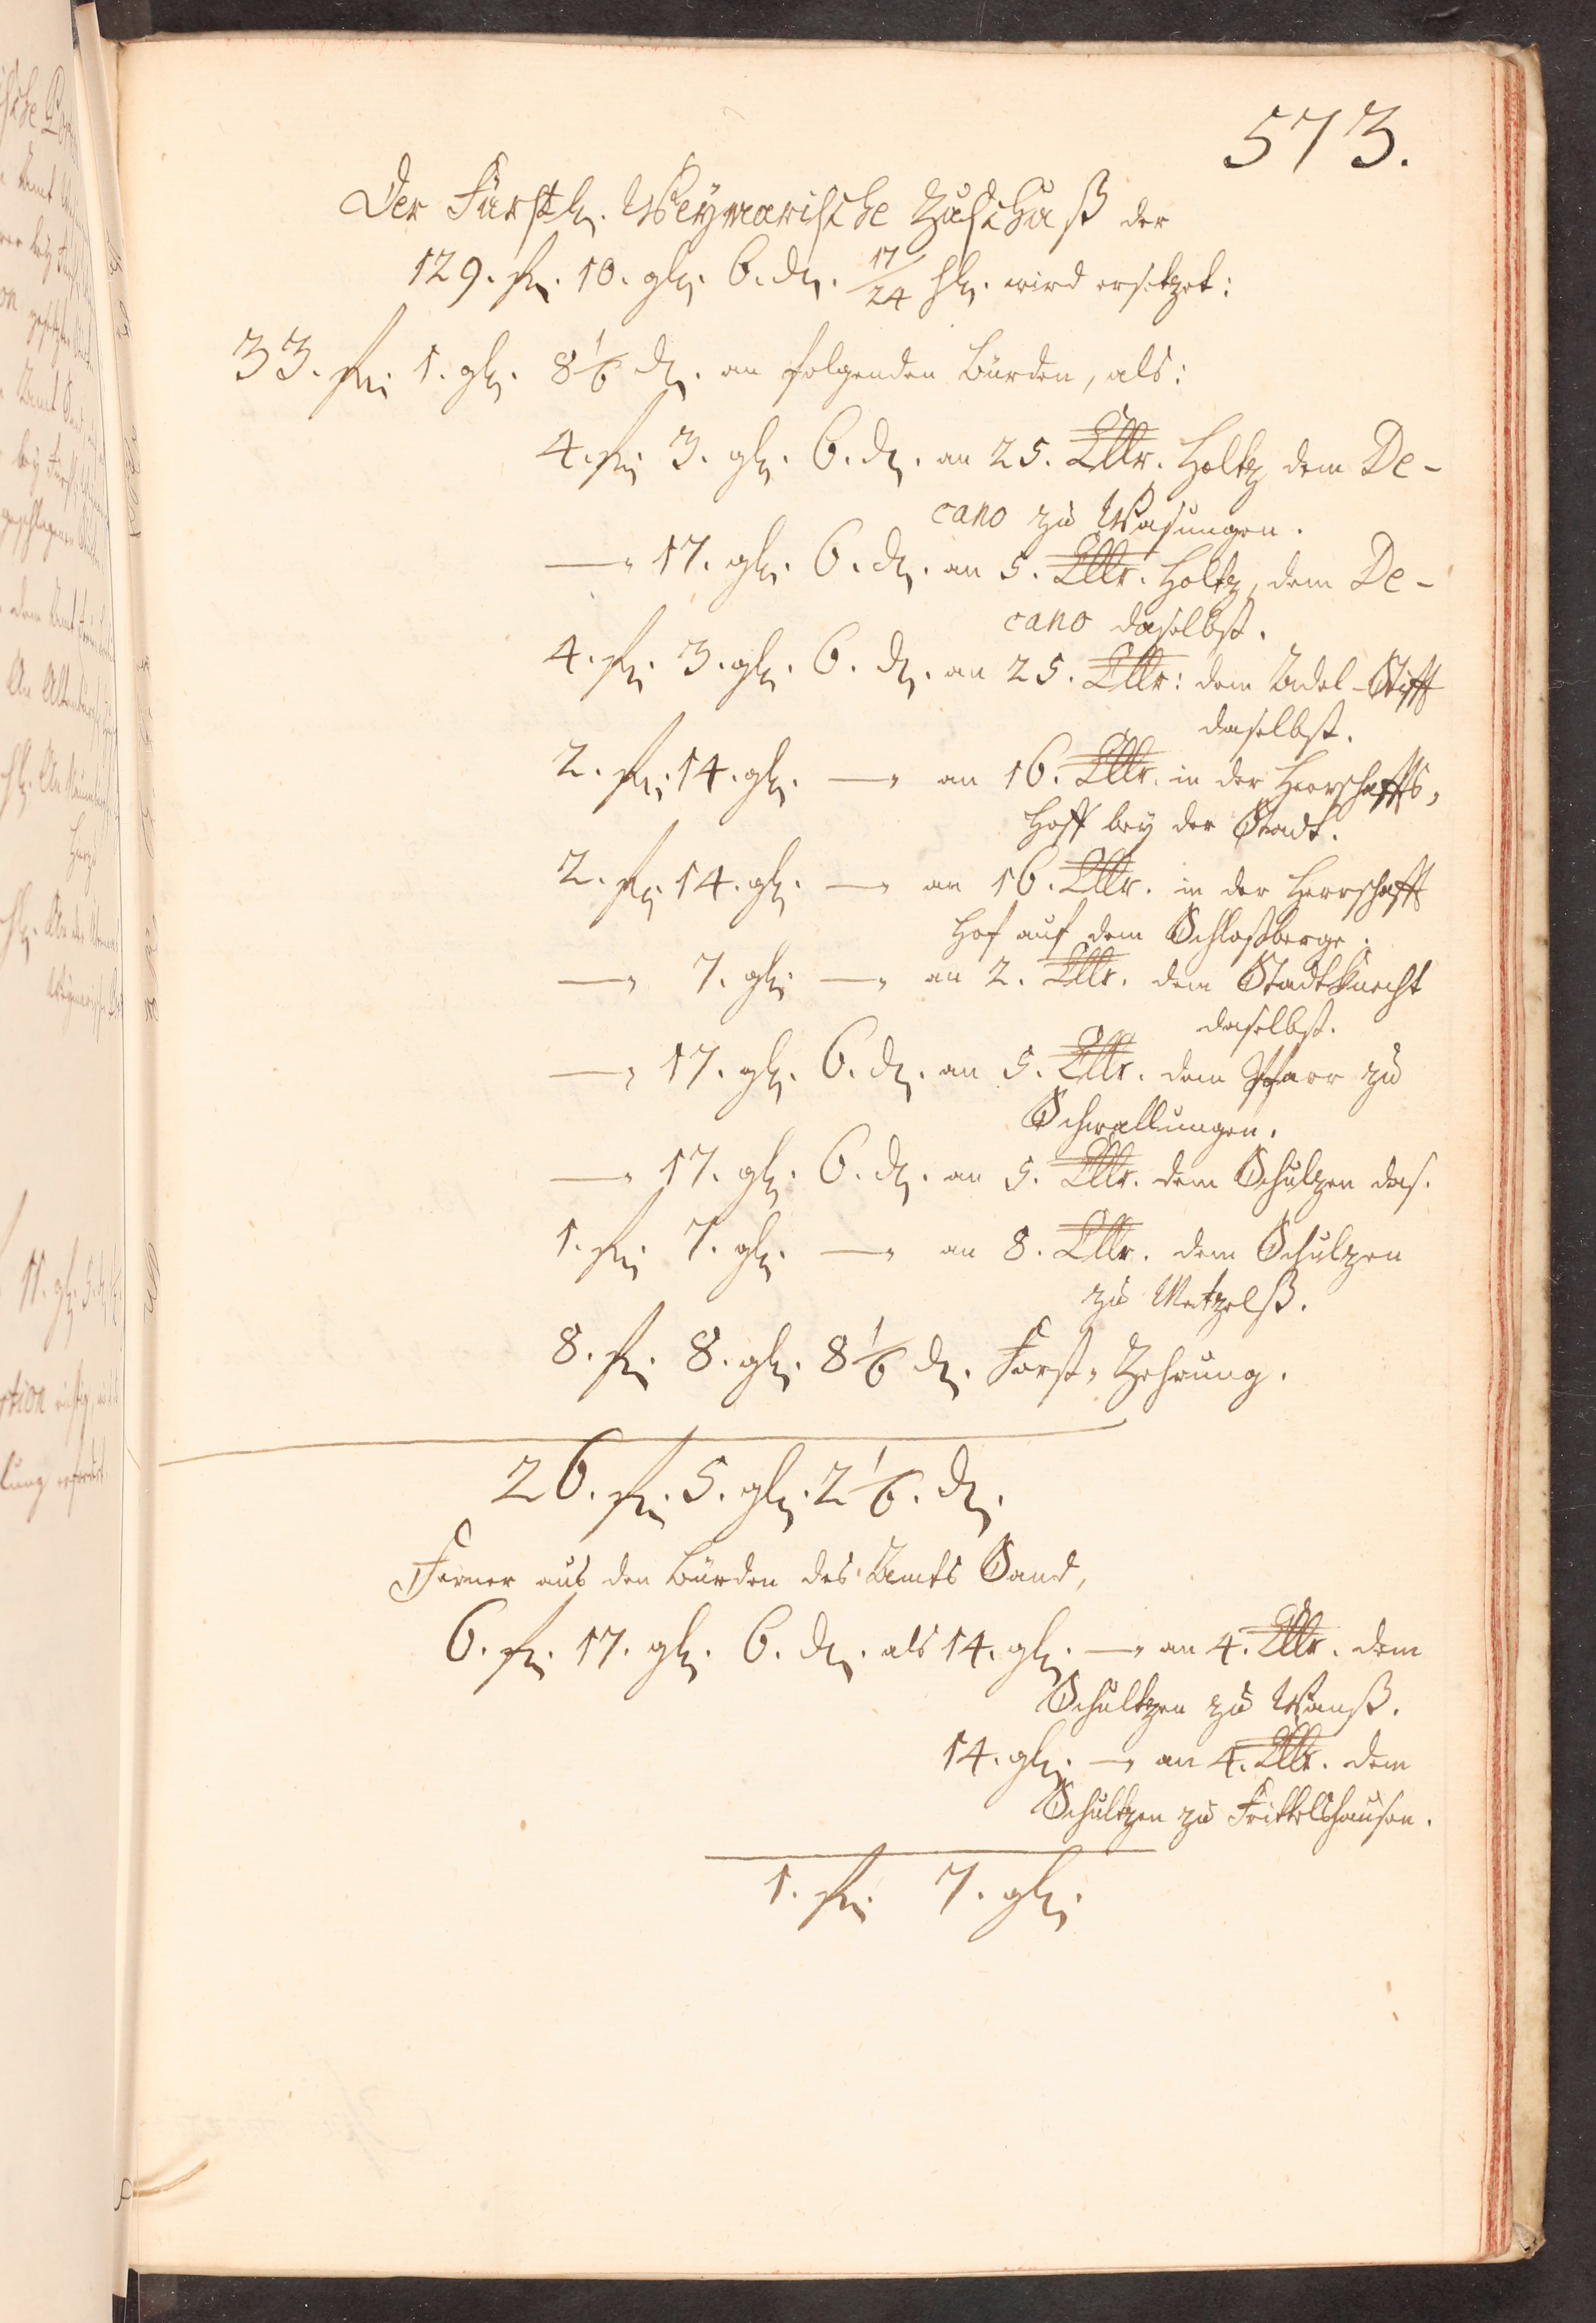 573.
Der Fürstl. Weymarische Zuschuß der
129. fl. 10. gl. 6. d. 17/24 hl. wird ersetzet:
33. fl. 1. gl. 8 1/6 d. an folgenden Bürden, als:
4. fl. 3. gl. 6. d. an 25. Clltr. Holtz dem De-
cano zu Wasungen.
— 17. gl. 6. d. an 5. Clltr. Holtz, dem De-
cano daselbst.
4. fl. 3. gl. 6. d. an 25. Clltr: dem Adel-Stifft
daselbst.
2. fl. 14. gl. — an 16. Clltr. in der Herrschaffts-
Hoff bey der Stadt.
2. fl. 14. gl. — an 16. Clltr. in der Herrschafft
Hof auf dem Schloßberge.
— 7. gl. — an 2. Clltr. dem Stadtknecht
daselbst.
— 17. gl. 6. d. an 5. Clltr. dem Pfarr zu
Schwallungen.
— 17. gl. 6. d. an 5. Clltr. dem Schulzen das.
1. fl. 7. gl. — an 8. Clltr. dem Schulzen
zu Metzelß.
8. fl. 8. gl. 8 1/6 d. Forst-Zehrung.
26. fl. 5. gl. 2 1/6. d.
Ferner aus den Bürden des Amts Sand,
6. fl. 17. gl. 6. d. als 14. gl. — an 4. Clltr. dem
Schultzen zu Wanß.
14. gl. — an 4. Clltr. dem
Schultzen zu Frittelshausen.
1. fl. 7. gl.